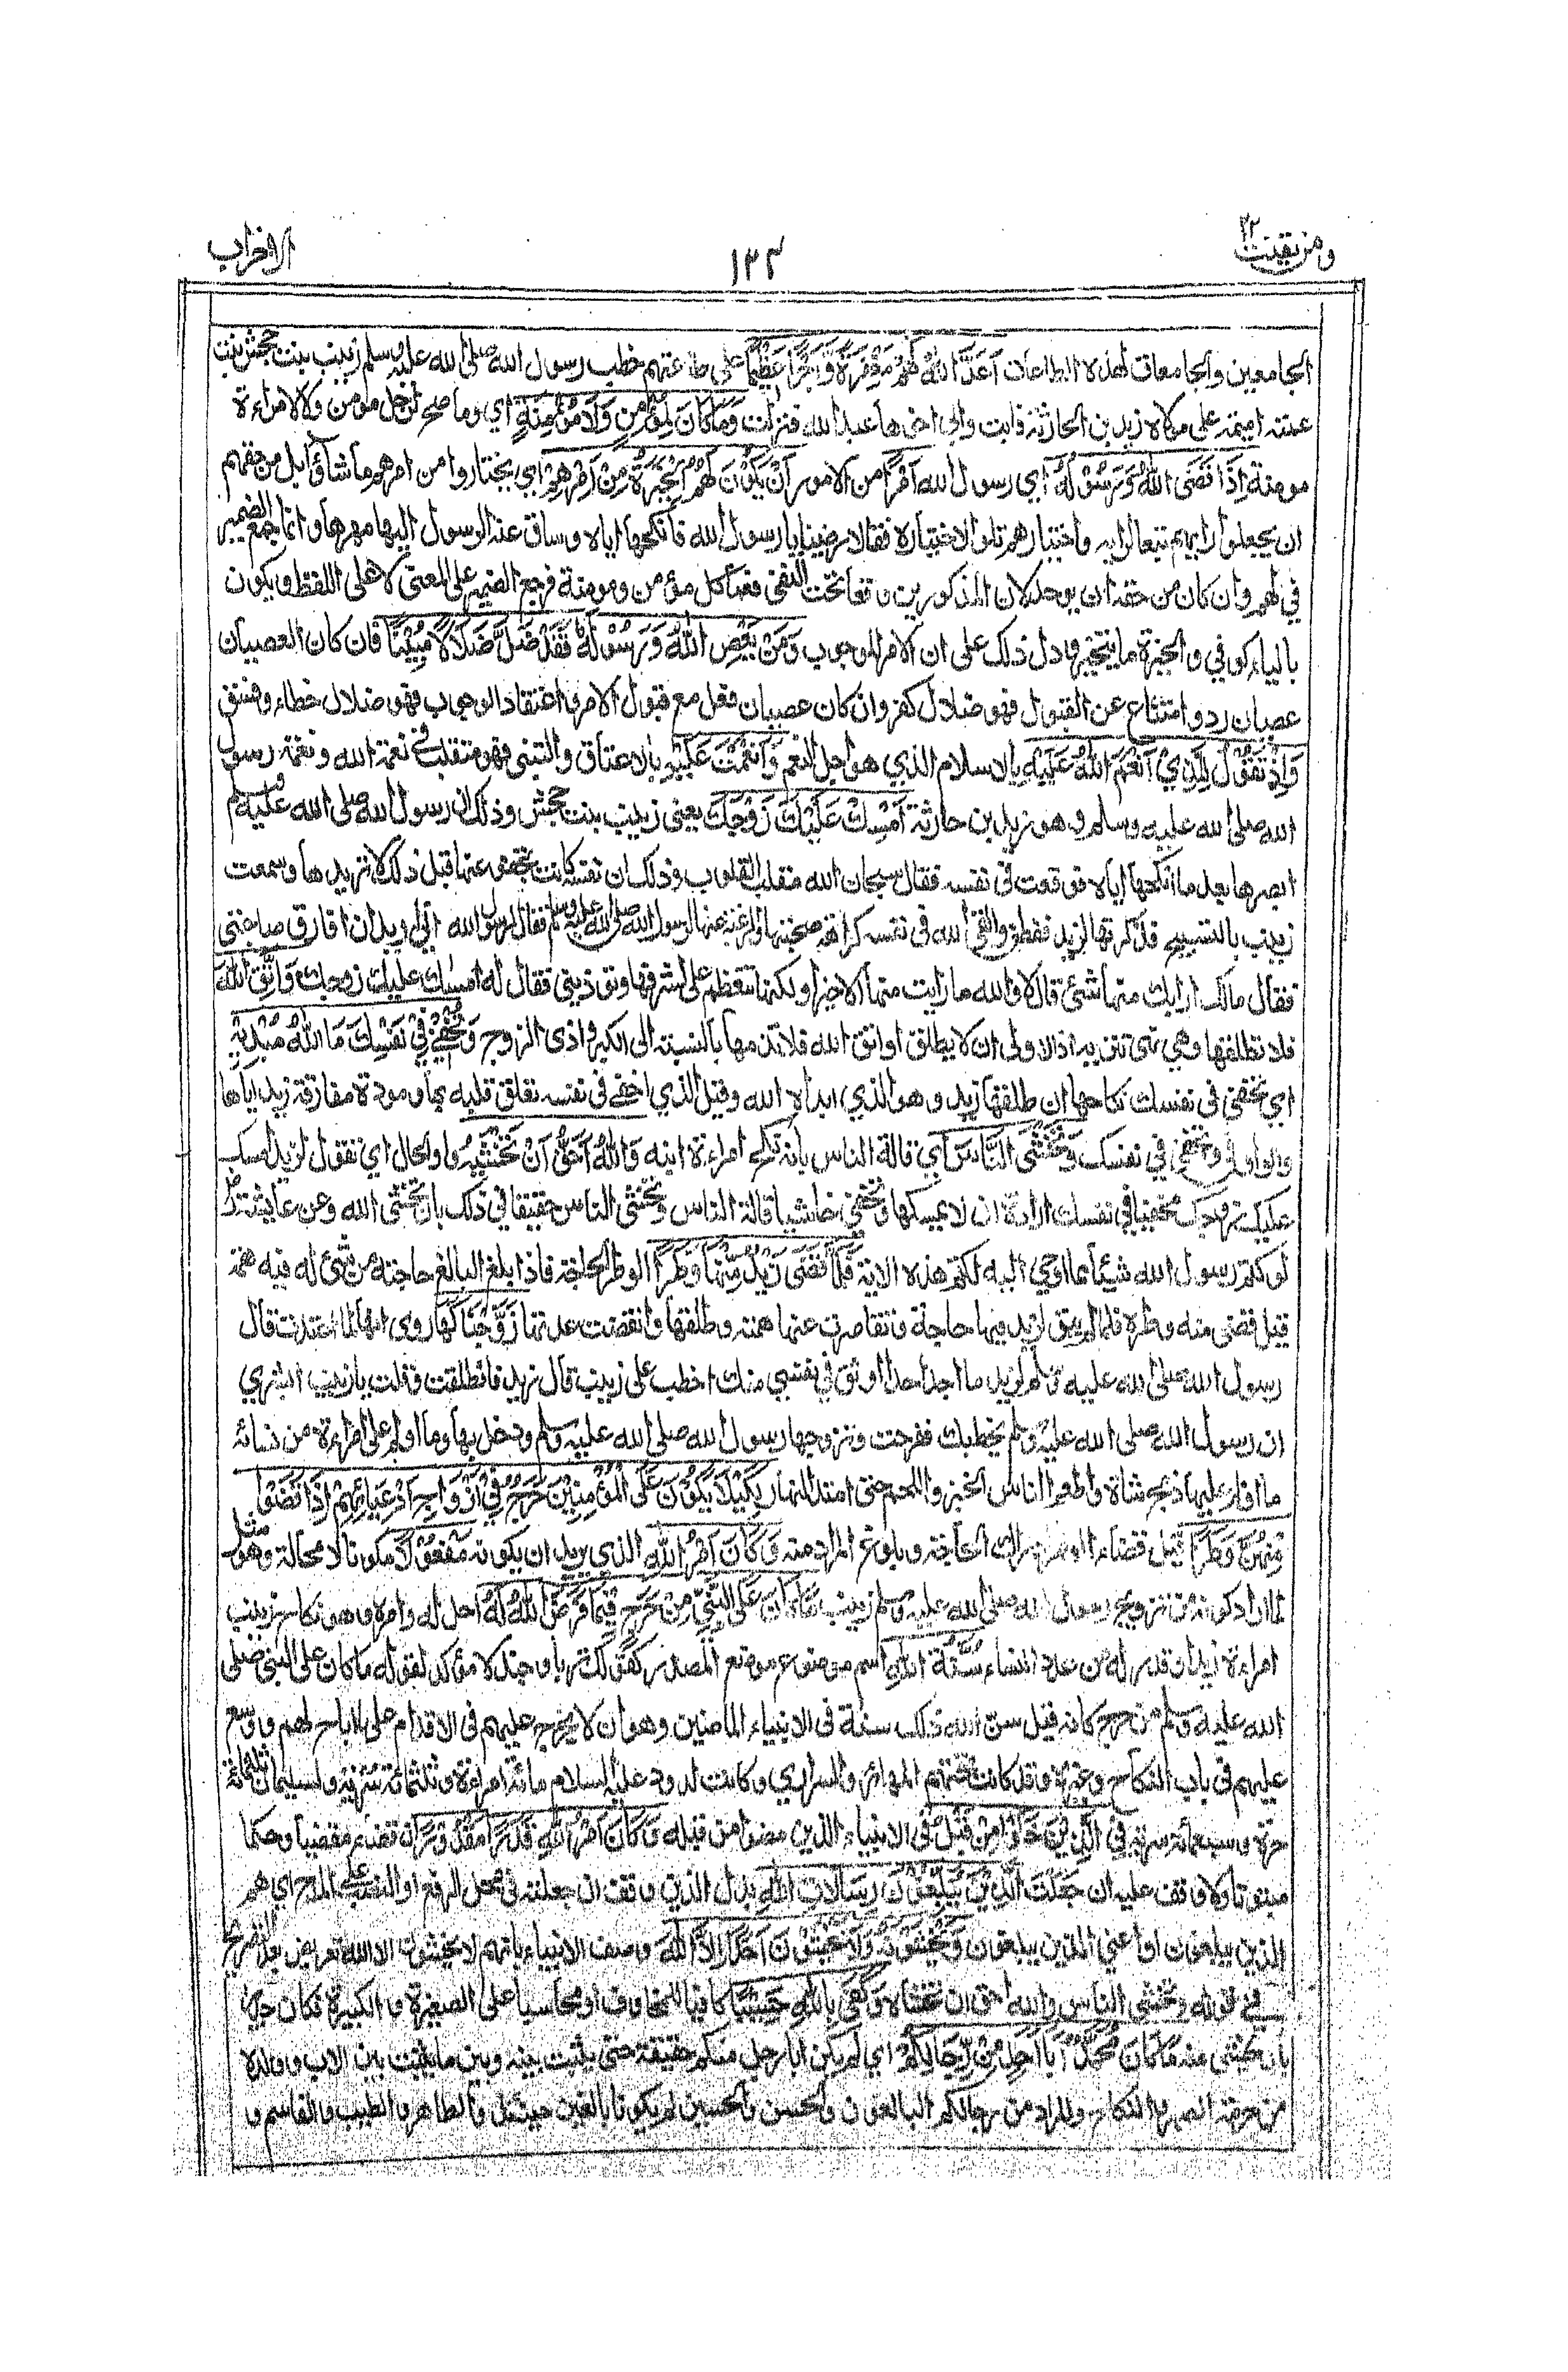 ومن يقنت ٢٢
١٣٢
الاحزاب
الجامعين والجامعات لهذه الطاعات اَعَدَّ اللهُ لَهُمْ مَغْفِرَةً وَّاَجْرًا عَظِيْمًا على طاعتهم خطب رسول الله صلى الله عليه وسلم زينب بنت جحش بنت
عمته اميمة على مولاه زيد بن الحارثة فابت وابى اخوها عبد الله فنزلت وَمَا كَانَ لِمُؤْمِنٍ وَلَا مُؤْمِنَةٍ اي وما صح لرجل مومن ولا لامراءة
مومنة اِذَا قَضَى اللهُ وَرَسُوْلُهُ اي رسول الله اَمْرًا من الامور اَنْ يَكُوْنَ لَهُمُ الْخِيَرَةُ مِنْ اَمْرِهِمْ اي يختاروا من امرهم ما شاؤا بل من حقهم
ان يجعلوا رايهم تبعا لرايه واختيارهم تلوا لاختياره فقالا رضينا يا رسول الله فانكحها اياه وساق عنه الرسول اليها مهرها وانما جمع الضمير
في لهم وان كان من حقه ان يوحد لان المذكورين وقعا تحت النفي فعما كل مؤمن ومومنة فرجع الضمير على المعنى لا على اللفظ ويكون
بالياء كوفي والخيرة ما يتخير ودل ذلك على ان الامر للوجوب وَمَنْ يَعْصِ اللهَ وَرَسُوْلَهُ فَقَدْ ضَلَّ ضَلَالًا مُّبِيْنًا فان كان العصيان
عصيان رد وامتناع عن القبول فهو ضلال كفر وان كان عصيان فعل مع قبول الامر واعتقاد الوجوب فهو ضلال خطاء وفسق
وَاِذْ تَقُوْلُ لِلَّذِيْ اَنْعَمَ اللهُ عَلَيْهِ بالاسلام الذي هو اجل النعم وَاَنْعَمْتَ عَلَيْهِ بالاعتاق والتبني فهو متقلب في نعمة الله ونعمة رسول
الله صلى الله عليه وسلم وهو زيد بن حارثة اَمْسِكْ عَلَيْكَ زَوْجَكَ يعنى زينب بنت جحش وذلك ان رسول الله صلى الله عليه وسلم
ابصرها بعد ما انكحها اياه فوقعت في نفسه فقال سبحان الله مقلب القلوب وذلك ان نفسه كانت تجفو عنها قبل ذلك لا تريدها وسمعت
زينب بالتسبيح فذكرتها لزيد ففطن والقى الله في نفسه كراهة صحبتها والرغبة عنها لرسول الله صلى الله عليه وسلم فقال لرسول الله اني اريد ان افارق صاحبتي
فقال مالك ارابك منها شئ قال لا والله ما رايت منها الا خيرا ولكنها تتعظم على لشرفها وتوذيني فقال له امسك عليك زوجك وَاتَّقِ اللهَ
فلا تطلقها وهي نهى تنزيه اذ الاولى ان لا يطلق او اتق الله فلا تذمها بالنسبة الى الكبر واذى الزوج وَتُخْفِيْ فِيْ نَفْسِكَ مَا اللهُ مُبْدِيْهِ
اي تخفي في نفسك نكاحها ان طلقها زيد وهو الذي ابداه الله وقيل الذي اخفى في نفسه تعلق قلبه بها ومودة مفارقة زيد اياها
والواو في وتخفي في نفسك وَتَخْشَى النَّاسَ اي قالة الناس بانه نكح امراءة ابنه وَاللهُ اَحَقُّ اَنْ تَخْشٰيهُ واو الحال اي تقول لزيد امسك
عليك زوجك مخفيا في نفسك ارادة ان لا يمسكها وتخفي خاشيا قالة الناس وتخشى الناس حقيقا في ذلك بان تخشى الله وعن عائشة رض
لو كتم رسول الله شيئا مما اوحي اليه لكتم هذه الاية فَلَمَّا قَضَى زَيْدٌ مِّنْهَا وَطَرًا الوطر الحاجة فاذا بلغ البالغ حاجته من شئ له فيه همة
قيل قضى منه وطره فلما لم يبق لزيد فيها حاجة وتقاصرت عنها همته وطلقها وانقضت عدتها زَوَّجْنَاكَهَا روى انها لما اعتدت قال
رسول الله صلى الله عليه وسلم لزيد ما اجد احدا اوثق في نفسي منك اخطب على زينب قال زيد فانطلقت وقلت يا زينب ابشري
ان رسول الله صلى الله عليه وسلم يخطبك ففرحت وتزوجها رسول الله صلى الله عليه وسلم ودخل بها وما اولم على امراءة من نسائه
ما اولم عليها ذبح شاة واطعم الناس الخبز واللحم حتى امتد النهار لِكَيْلَا يَكُوْنَ عَلَى الْمُؤْمِنِيْنَ حَرَجٌ فِيْ اَزْوَاجِ اَدْعِيَائِهِمْ اِذَا قَضَوْا
مِنْهُنَّ وَطَرًا قيل قضاء الوطر ادراك الحاجة وبلوغ المراد منه وَكَانَ اَمْرُ اللهِ الذي يريد ان يكونه مَفْعُوْلًا مكونا لا محالة وهو مثل
لما اراد كونه من تزويج رسول الله صلى الله عليه وسلم زينب مَا كَانَ عَلَى النَّبِيِّ مِنْ حَرَجٍ فِيْمَا فَرَضَ اللهُ لَهُ احل له وامره وهو نكاح زينب
امراءة زيد او قدر له من عدد النساء سُنَّةَ اللهِ اسم موضوع موضع المصدر كقولك تربا وجندلا مؤكد لقوله ما كان على النبي صلى
الله عليه وسلم من حرج كانه قيل سن الله ذلك سنة في الانبياء الماضين وهو ان لا يحرج عليهم في الاقدام على ما اباح لهم ووسع
عليهم في باب النكاح وغيره وقد كانت تحتهم المهائر والسراري وكانت لداود عليه السلام مائة امراءة وثلثمائة سرية ولسليمان ثلثمائة
حرة وسبعمائة سرية فِي الَّذِيْنَ خَلَوْا مِنْ قَبْلُ في الانبياء الذين مضوا من قبله وَكَانَ اَمْرُ اللهِ قَدَرًا مَّقْدُوْرًا قضاء مقضيا وحكما
مبتوتا ولا وقف عليه ان جعلت الَّذِيْنَ يُبَلِّغُوْنَ رِسَالَاتِ اللهِ بدل الذين وقف ان جعلته في محل الرفع او النصب على المدح اي هم
الذين يبلغون او اعني الذين يبلغون وَيَخْشَوْنَهُ وَلَا يَخْشَوْنَ اَحَدًا اِلَّا اللهَ وصف الانبياء بانهم لا يخشون الا الله تعريض بعد التصريح
في قوله وتخشى الناس والله احق ان تخشاه وَكَفَى بِاللهِ حَسِيْبًا كافيا للمخاوف او محاسبا على الصغيرة والكبيرة فكان جديرا
بان تخشى منه مَا كَانَ مُحَمَّدٌ اَبَا اَحَدٍ مِّنْ رِّجَالِكُمْ اي لم يكن ابا رجل منكم حقيقة حتى يثبت بينه وبين ما يثبت بين الاب وولده
من حرمة الصهر والنكاح والمراد من رجالكم البالغون والحسن والحسين لم يكونا بالغين حينئذ والطاهر والطيب والقاسم و